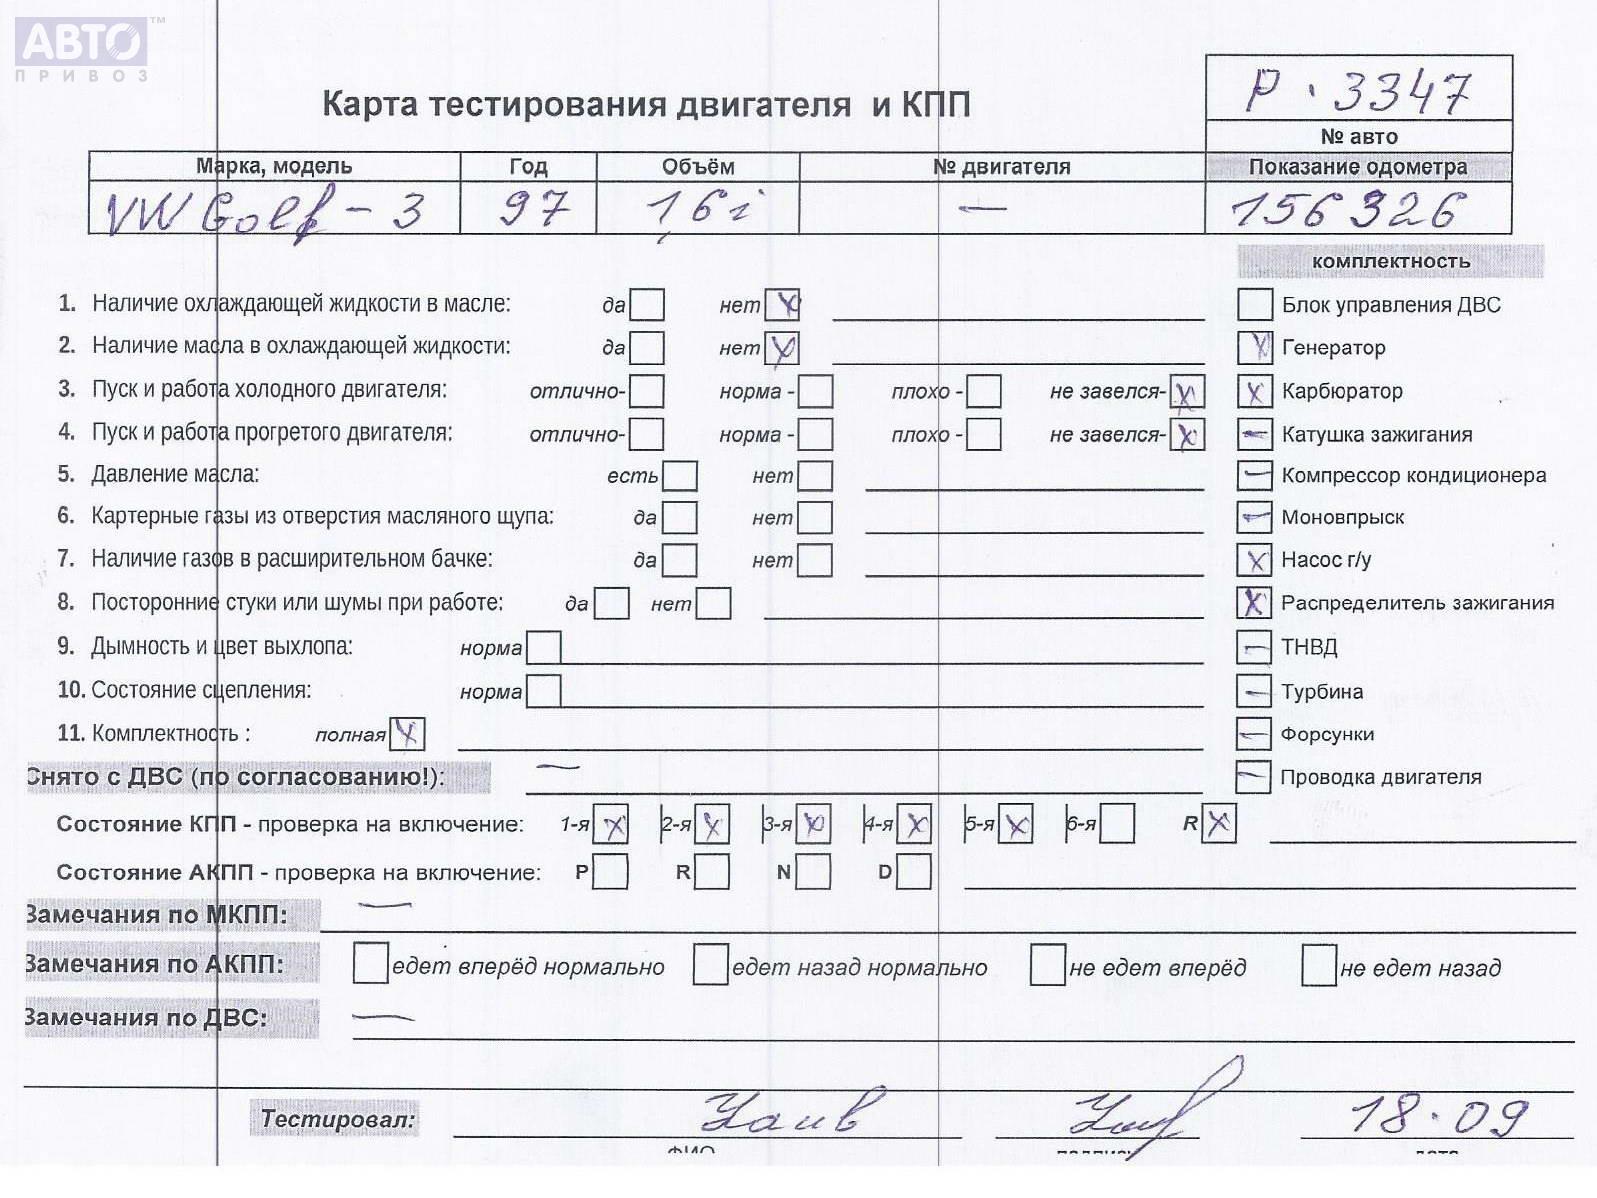 АВТО™
ПРИВОЗ
Р · 3347
Карта тестирования двигателя и КПП
№ авто
Марка, модель Год Объём № двигателя Показание одометра
VW Golf - 3 97 1,6 i — 156326
комплектность
1. Наличие охлаждающей жидкости в масле: да нет x Блок управления ДВС
2. Наличие масла в охлаждающей жидкости: да нет x x Генератор
3. Пуск и работа холодного двигателя: отлично- норма - плохо - не завелся- x x Карбюратор
4. Пуск и работа прогретого двигателя: отлично- норма - плохо - не завелся- x — Катушка зажигания
5. Давление масла: есть нет — Компрессор кондиционера
6. Картерные газы из отверстия масляного щупа: да нет — Моновпрыск
7. Наличие газов в расширительном бачке: да нет x Насос г/у
8. Посторонние стуки или шумы при работе: да нет x Распределитель зажигания
9. Дымность и цвет выхлопа: норма — ТНВД
10. Состояние сцепления: норма — Турбина
11. Комплектность : полная x — Форсунки
Снято с ДВС (по согласованию!): — — Проводка двигателя
Состояние КПП - проверка на включение: 1-я x 2-я x 3-я x 4-я x 5-я x 6-я R x
Состояние АКПП - проверка на включение: P R N D
Замечания по МКПП: —
Замечания по АКПП: едет вперёд нормально едет назад нормально не едет вперёд не едет назад
Замечания по ДВС: —
Тестировал: 18.09
ФИО подпись дата